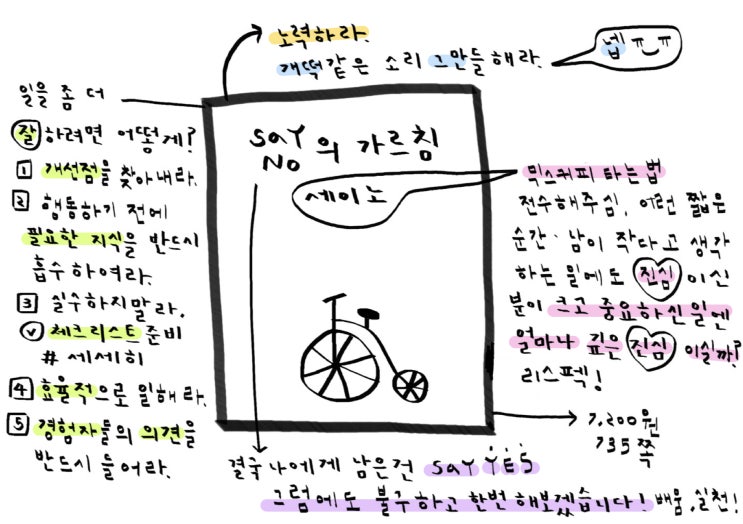 노력하라.
개떡같은 소리 그만들해라.
넵 ㅠㅠ
일을 좀 더
잘 하려면 어떻게?
1 개선점을 찾아내라.
2 행동하기 전에
필요한 지식을 반드시
흡수하여라.
3 실수하지말라.
v 체크리스트 준비
# 세세히
4 효율적으로 일해라.
5 경험자들의 의견을
반드시 들어라.
SAY
NO 의 가르침
세이노
믹스커피 타는법
전수해주심, 이런 짧은
순간·남이 작다고 생각
하는 일에도 진심 이신
분이 크고 중요하신일엔
얼마나 깊은 진심 이실까?
리스펙!
7,200원
735쪽
결국 나에게 남은건 SAY YES
그럼에도 불구하고 한번 해보겠습니다! 배움, 실천!